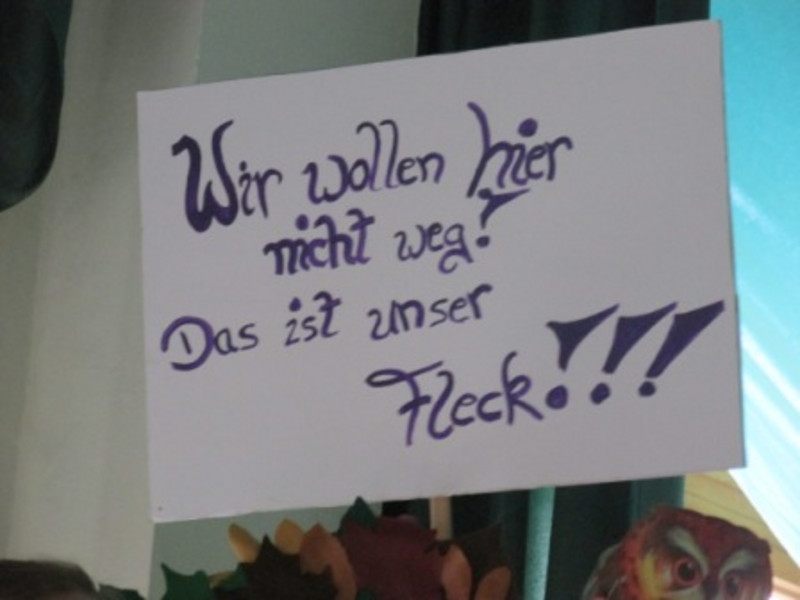 Wir wollen hier
nicht weg!
Das ist unser
Fleck!!!